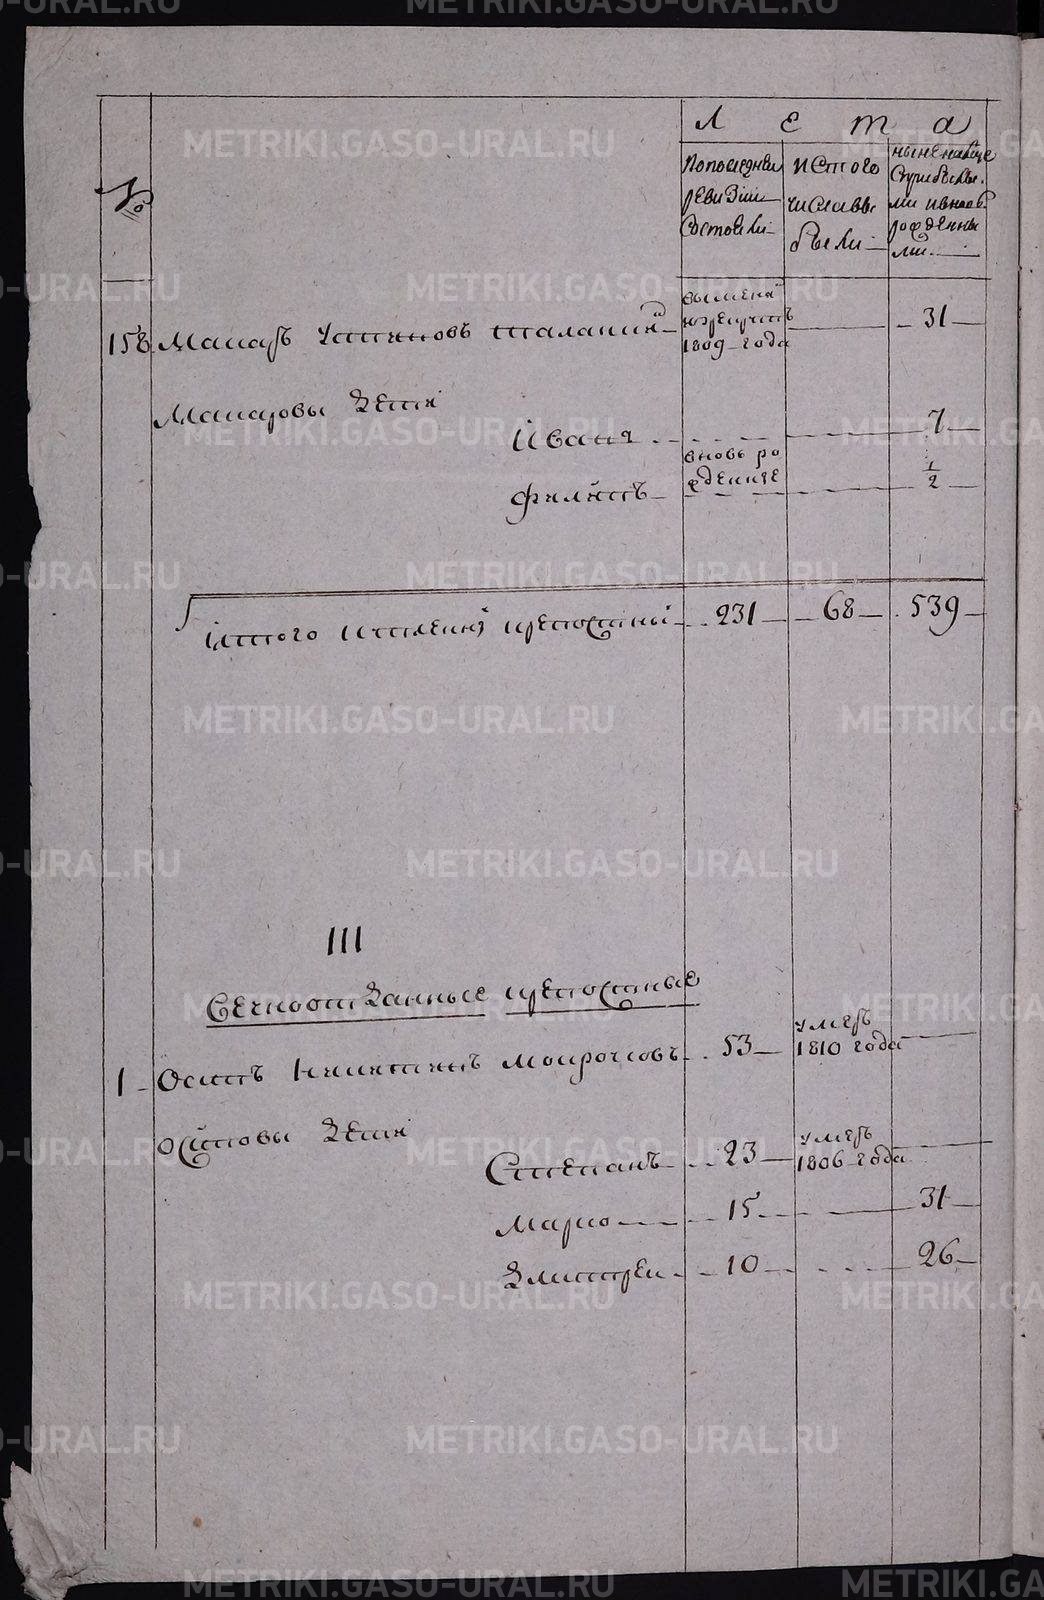 №
Лета
По последней
ревизии
состояли
ис того
числа вы
были
ныне на лице
с прибылы
ми и внов
рожденны
ми
158 Макаръ Устиновъ
1809 года
31
Макаровы дети
Иванъ 7
вновь ро
жденные
Филипъ 1/2
Итого крепостны 231 68 539
III
Вечноотданные крепостные
1 Осипъ Никитинъ 53
умеръ
1810 года
Осиповы дети
Степанъ 23
умеръ
1806 года
Марко 15 31
Дмитрей 10 26
METRIKI.GASO-URAL.RU